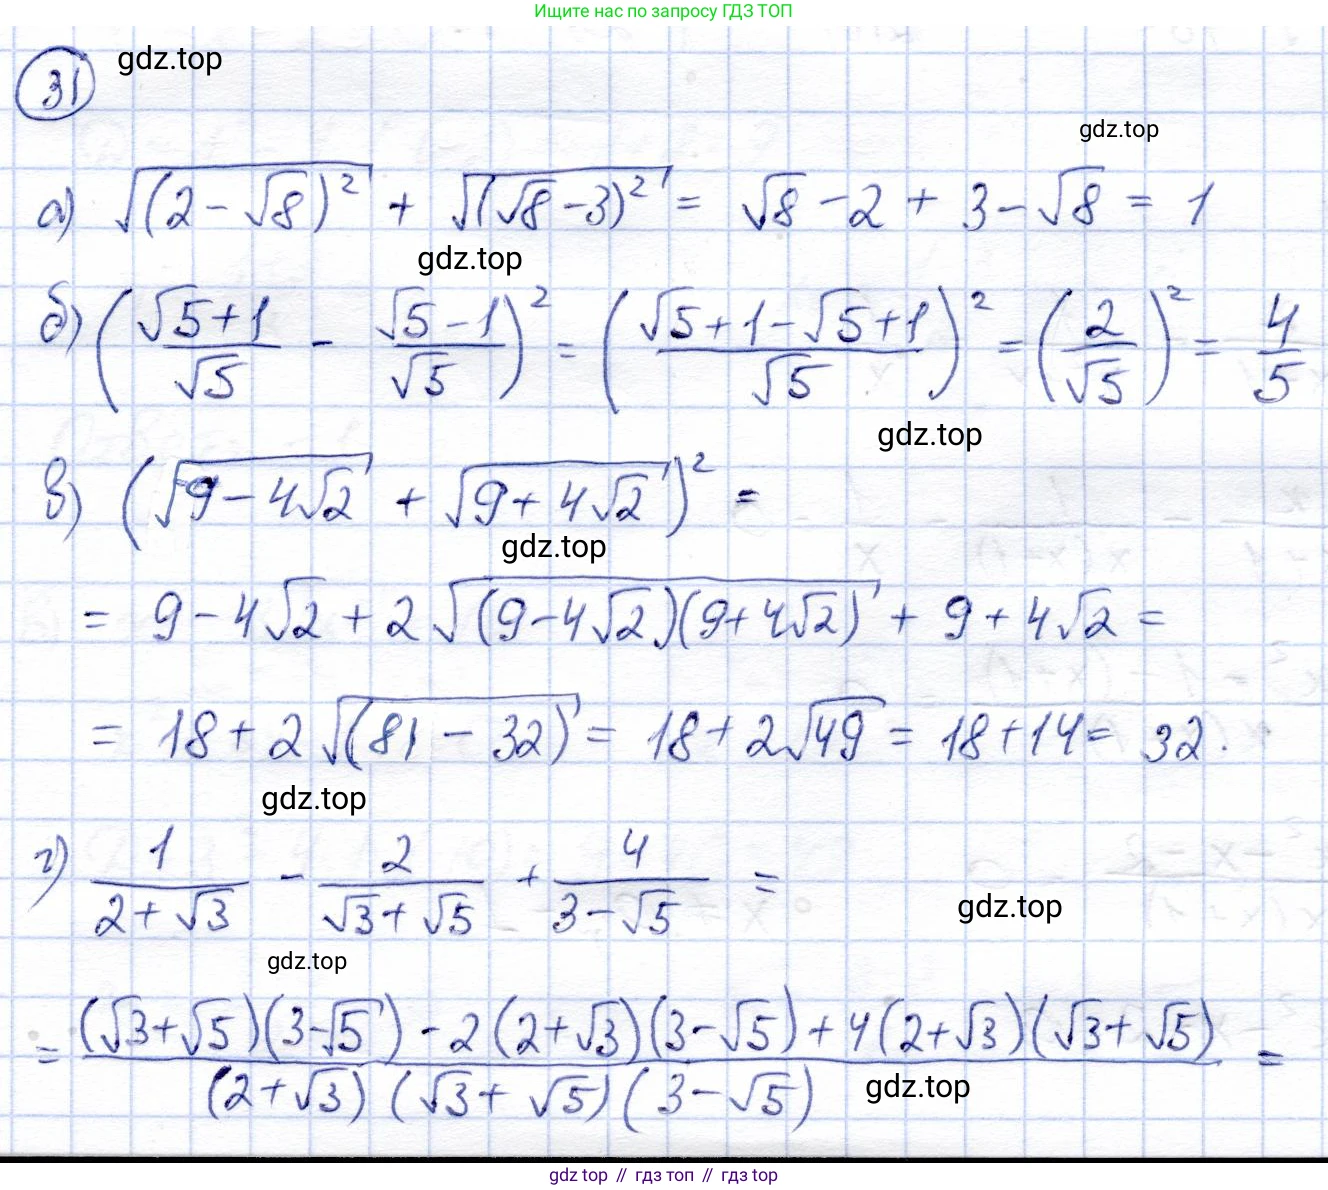 Ищите нас по запросу ГДЗ ТОП
31 gdz.top
gdz.top
а) √((2 - √8)²) + √((√8 - 3)²) = √8 - 2 + 3 - √8 = 1
gdz.top
б) ((√5 + 1)/√5 - (√5 - 1)/√5)² = ((√5 + 1 - √5 + 1)/√5)² = (2/√5)² = 4/5
gdz.top
в) (√(9 - 4√2) + √(9 + 4√2))² =
gdz.top
= 9 - 4√2 + 2√((9 - 4√2)(9 + 4√2)) + 9 + 4√2 =
= 18 + 2√((81 - 32)) = 18 + 2√49 = 18 + 14 = 32.
gdz.top
г) 1/(2 + √3) - 2/(√3 + √5) + 4/(3 - √5) =
gdz.top
gdz.top
= ((√3 + √5)(3 - √5) - 2(2 + √3)(3 - √5) + 4(2 + √3)(√3 + √5))/((2 + √3)(√3 + √5)(3 - √5)) =
gdz.top
gdz top // гдз топ // гдз top